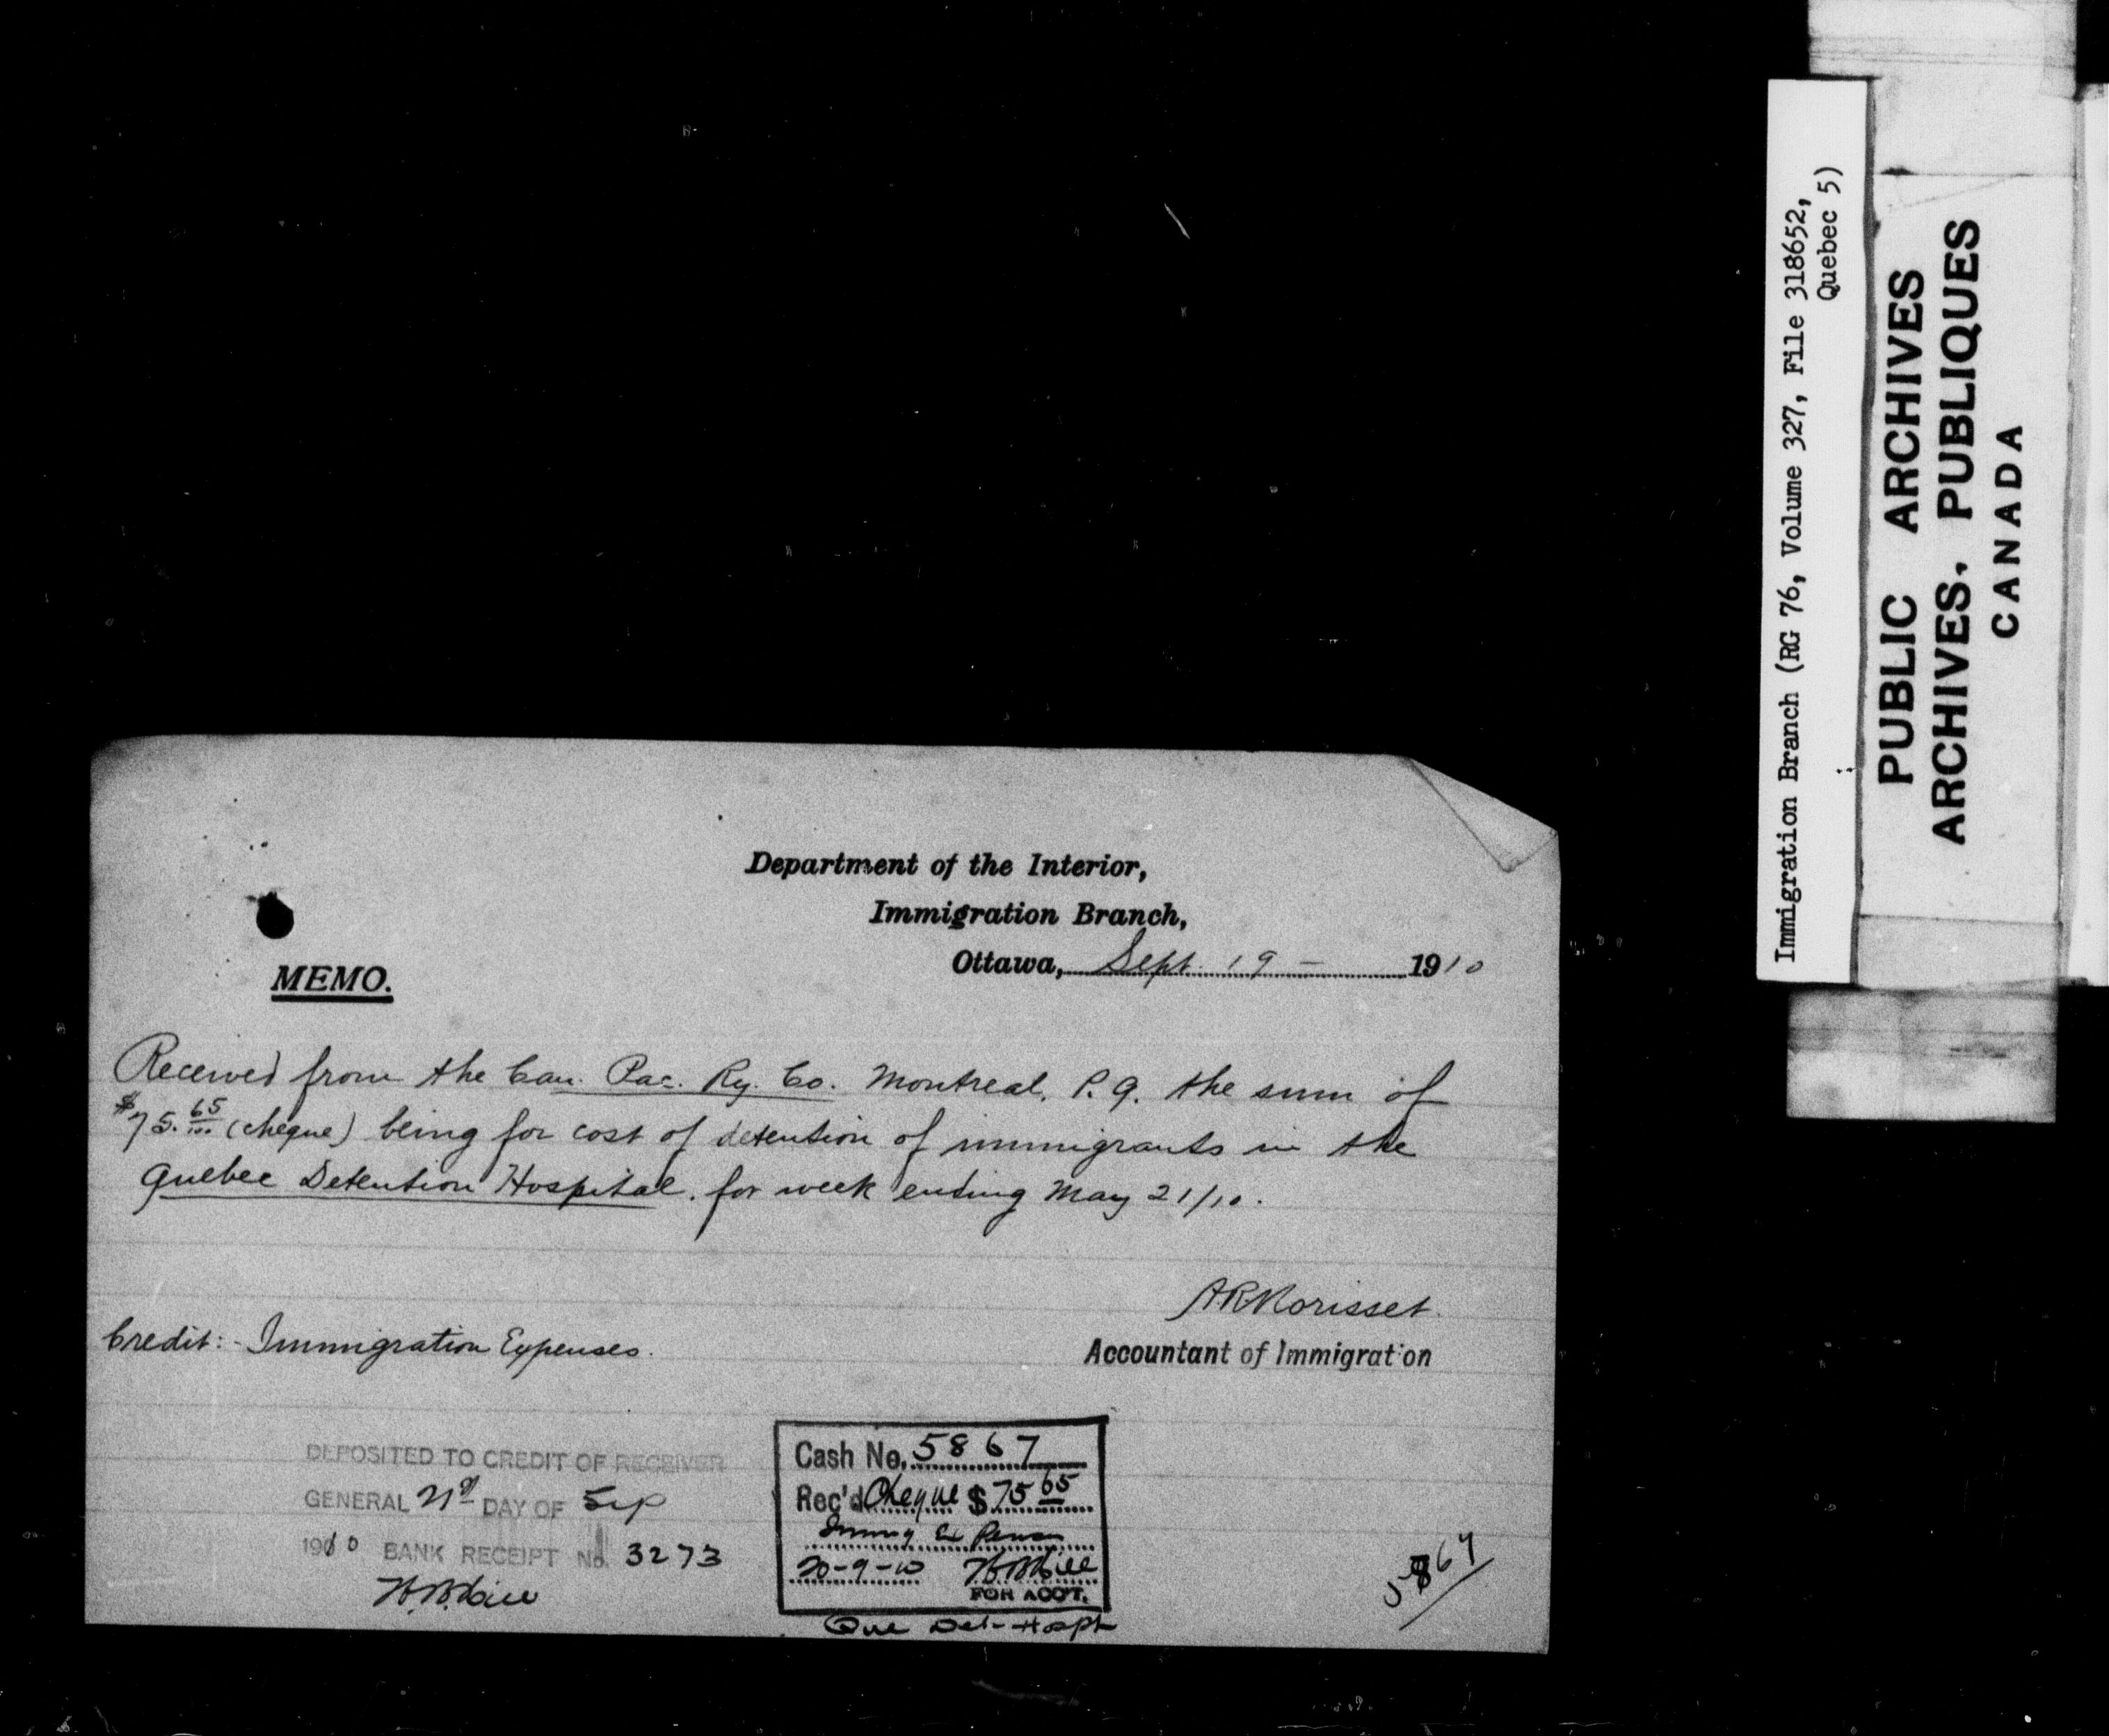 Department of the Interior,
Immigration Branch,
Ottawa, Sept. 19 - 1910
MEMO.
Received from the Can. Pac. Ry. Co. Montreal, P.Q. the sum of
$75.65/100 (cheque) being for cost of detention of immigrants in the
Quebec Detention Hospital, for week ending May 21/10.
ARMorisset.
Accountant of Immigration
Credit:- Immigration Expenses.
DEPOSITED TO CREDIT OF RECEIVER
GENERAL 21st DAY OF Sep
1910 BANK RECEIPT No. 3273
Cash No. 5867
Rec'd Cheque $75 65
20-9-10
FOR ACC'T.
Que Det-Hospt
5867
Immigration Branch (RG 76, Volume 327, File 318652,
Quebec 5)
PUBLIC ARCHIVES
ARCHIVES PUBLIQUES
CANADA